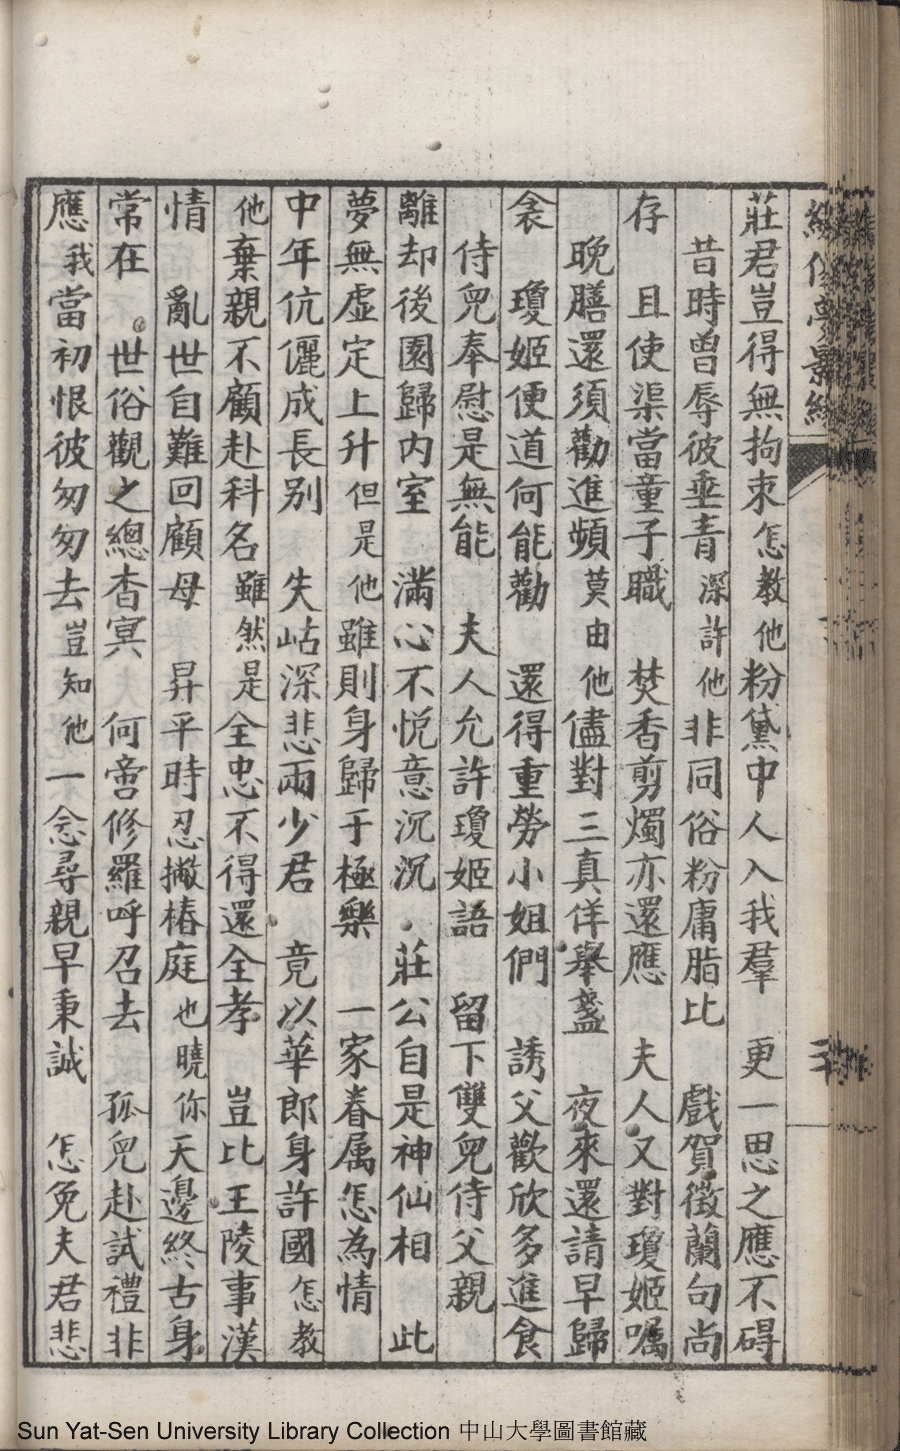 莊君豈得無拘束怎教他粉黛中人入我羣　更一思之應不碍
昔時曾辱彼垂青深許他非同俗粉庸脂比　戲賀徵蘭句尚
存　且使渠當童子職　焚香剪燭亦還應　夫人又對瓊姬囑
晚膳還須勸進頻莫由他儘對三真佯舉盞　夜來還請早歸
衾　瓊姬便道何能勸　還得重勞小姐們　誘父歡欣多進食
侍兒奉慰是無能　夫人允許瓊姬語　留下雙兒侍父親
離却後園歸内室　滿心不悅意沉沉　莊公自是神仙相　此
夢無虛定上升但是他雖則身歸于極樂　一家眷属怎為情
中年伉儷成長别　失岵深悲兩少君　竟以華郎身許國怎教
他棄親不顧赴科名雖然是全忠不得還全孝　豈比王陵事漢
情　亂世自難回顧母　昇平時忍撇椿庭也曉你天邊終古身
常在　世俗觀之總杳冥　何啻修羅呼召去　孤兒赴試禮非
應我當初恨彼匆匆去豈知他一念尋親早秉誠　怎免夫君悲
Sun Yat-Sen University Library Collection 中山大學圖書館藏